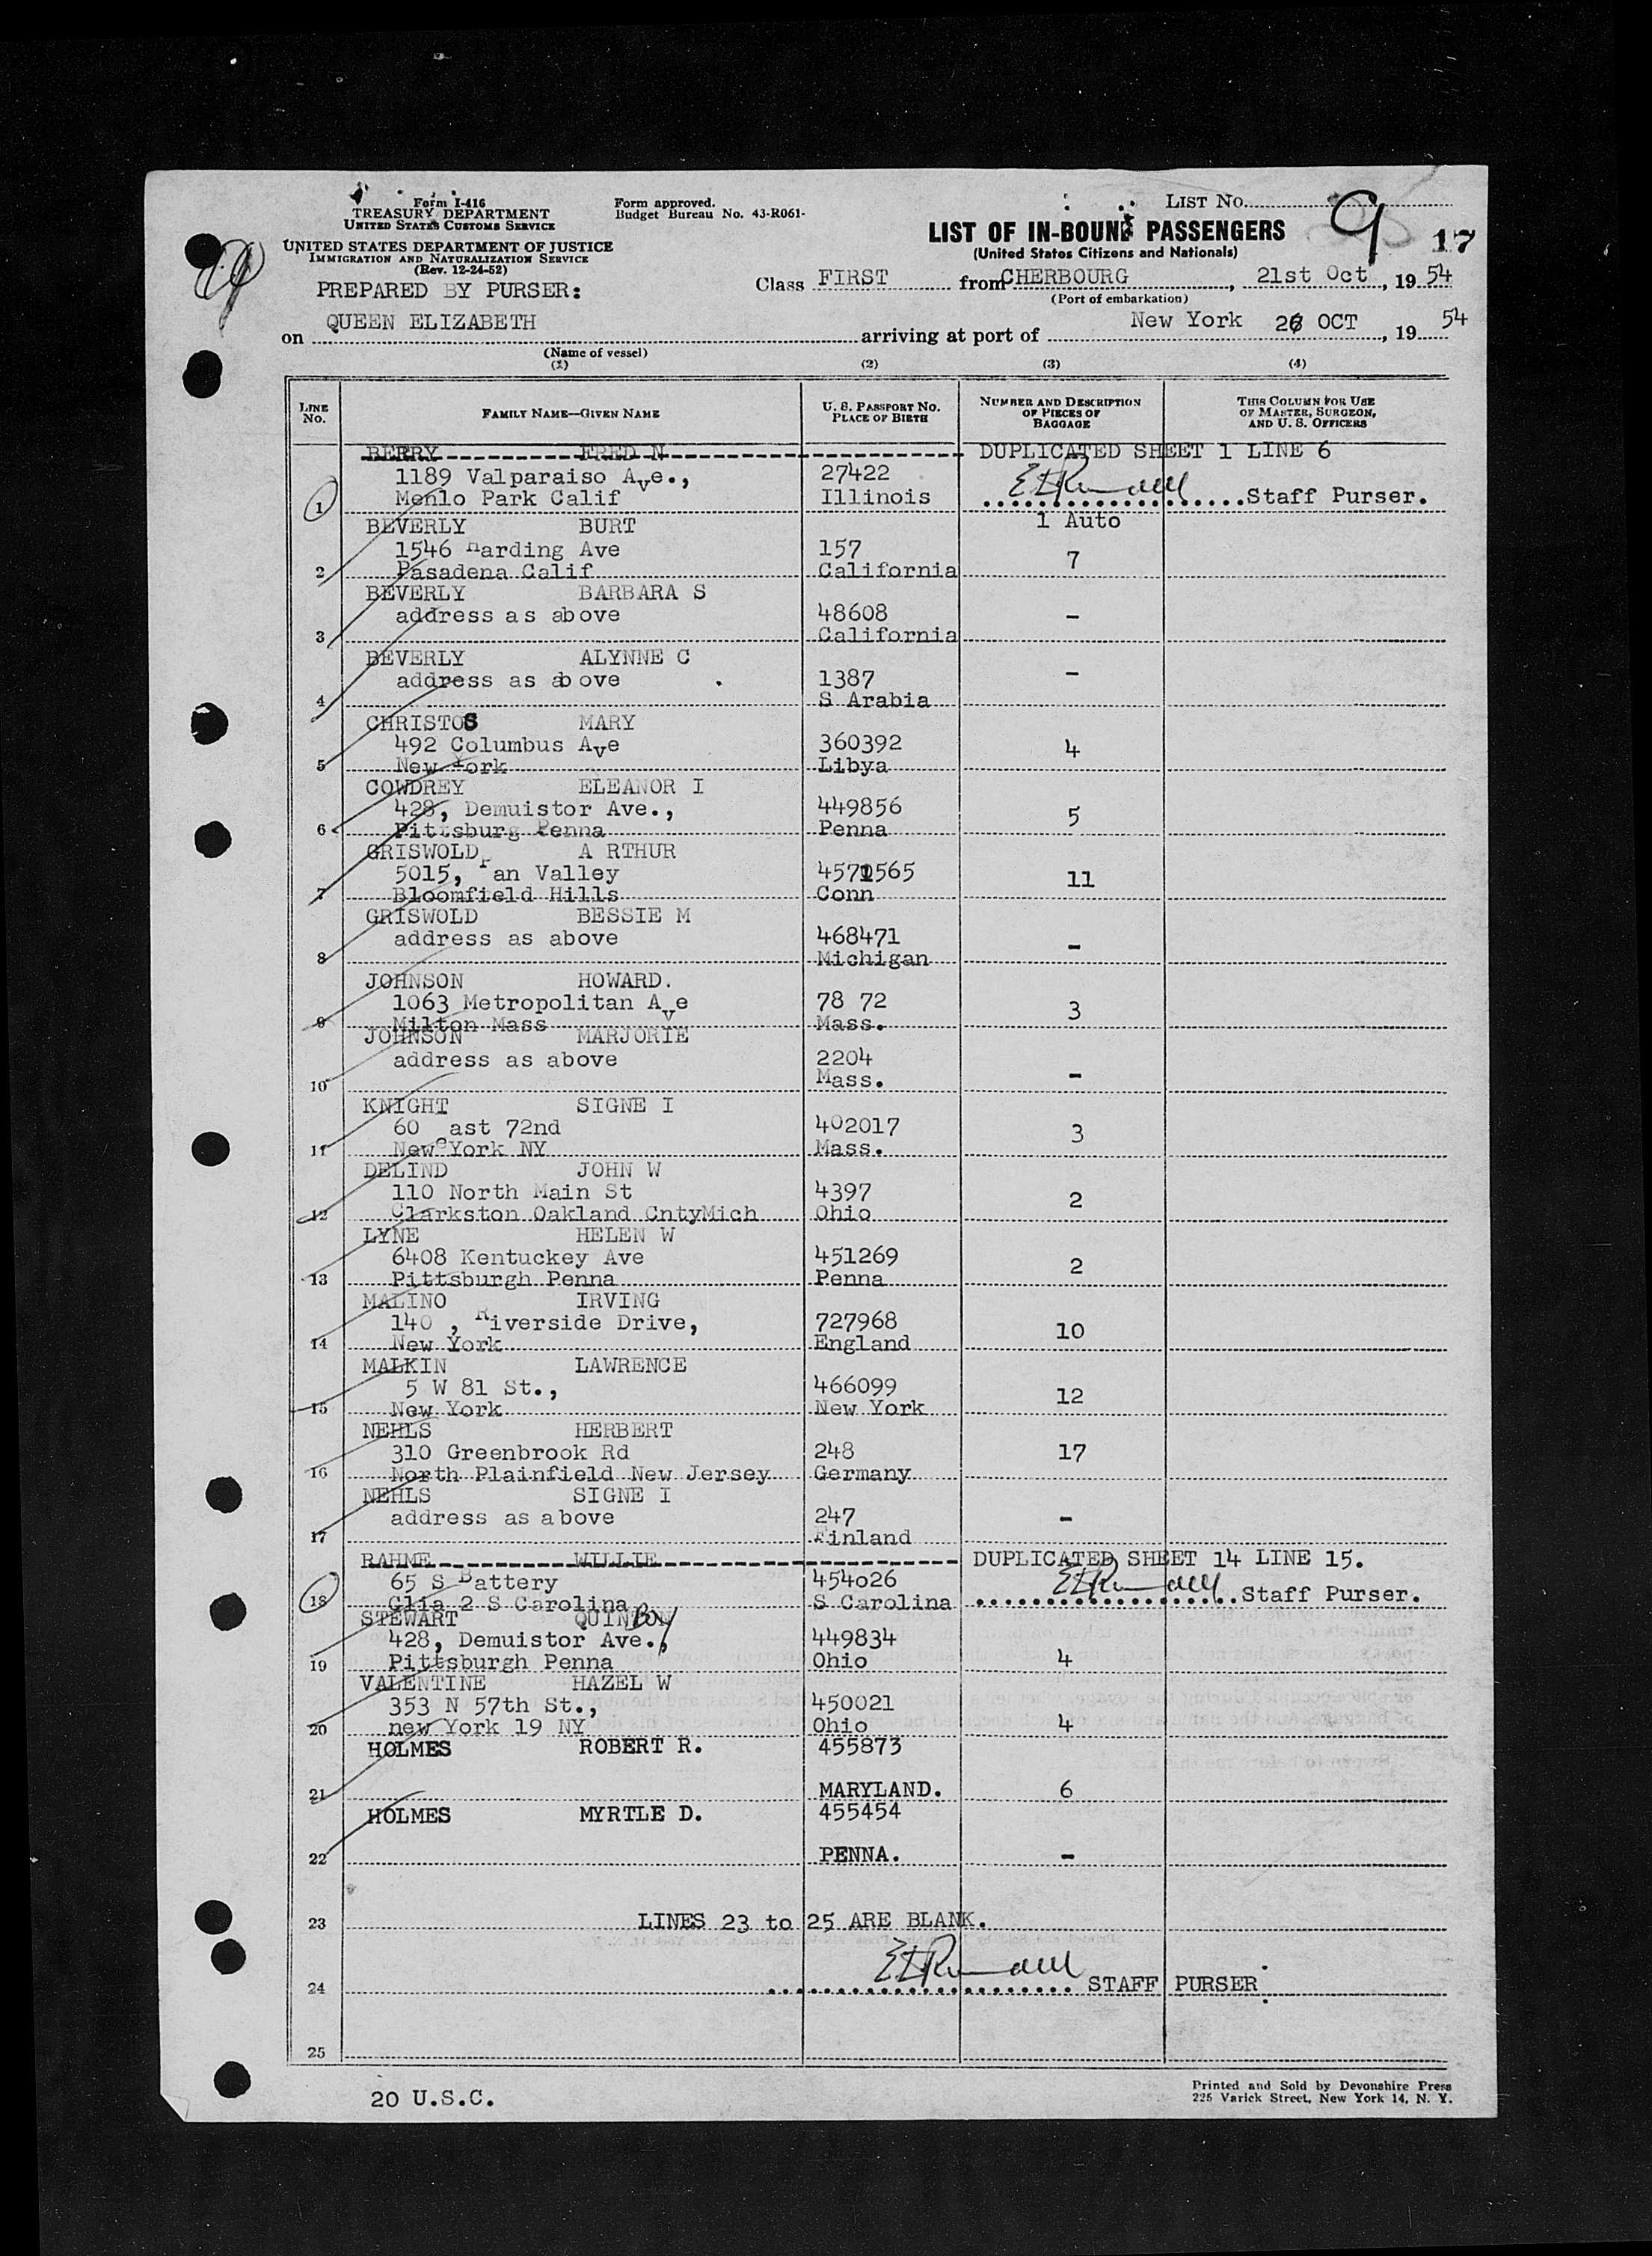 Form I-416
TREASURY DEPARTMENT
UNITED STATES CUSTOMS SERVICE
UNITED STATES DEPARTMENT OF JUSTICE
IMMIGRATION AND NATURALIZATION SERVICE
(Rev. 12-24-52)
PREPARED BY PURSER:
Form approved.
Budget Bureau No. 43-R061-
LIST No. 9
17
LIST OF IN-BOUND PASSENGERS
(United States Citizens and Nationals)
Class FIRST from CHERBOURG, 21st Oct, 19 54
(Port of embarkation)
on QUEEN ELIZABETH arriving at port of New York 26 OCT, 19 54
(Name of vessel)
(1) (2) (3) (4)
LINE No. FAMILY NAME--GIVEN NAME U. S. PASSPORT No. PLACE OF BIRTH NUMBER AND DESCRIPTION OF PIECES OF BAGGAGE THIS COLUMN FOR USE OF MASTER, SURGEON, AND U. S. OFFICERS
BERRY FRED N DUPLICATED SHEET 1 LINE 6
1189 Valparaiso Ave., 27422
1 Menlo Park Calif Illinois Staff Purser.
BEVERLY BURT 1 Auto
1546 Harding Ave 157 7
2 Pasadena Calif California
BEVERLY BARBARA S
address as above 48608 -
3 California
BEVERLY ALYNNE C
address as above 1387 -
4 S Arabia
CHRISTOS MARY
492 Columbus Ave 360392 4
5 New York Libya
COWDREY ELEANOR I
428, Demuistor Ave., 449856 5
6 Pittsburg Penna Penna
GRISWOLD A RTHUR
5015, Pan Valley 4571565 11
7 Bloomfield Hills Conn
GRISWOLD BESSIE M
address as above 468471 -
8 Michigan
JOHNSON HOWARD.
1063 Metropolitan Ave 78 72 3
9 Milton Mass Mass.
JOHNSON MARJORIE
address as above 2204
10 Mass. -
KNIGHT SIGNE I
60 east 72nd 402017 3
11 New York NY Mass.
DELIND JOHN W
110 North Main St 4397 2
12 Clarkston Oakland CntyMich Ohio
LYNE HELEN W
6408 Kentuckey Ave 451269 2
13 Pittsburgh Penna Penna
MALINO IRVING
140 , Riverside Drive, 727968 10
14 New York England
MALKIN LAWRENCE
5 W 81 St., 466099 12
15 New York New York
NEHLS HERBERT
310 Greenbrook Rd 248 17
16 North Plainfield New Jersey Germany
NEHLS SIGNE I
address as above 247 -
17 Finland
RAHME WILLIE DUPLICATED SHEET 14 LINE 15.
65 S Battery 454026
18 Glia 2 S Carolina S Carolina Staff Purser.
STEWART QUINBOY
428, Demuistor Ave., 449834
19 Pittsburgh Penna Ohio 4
VALENTINE HAZEL W
353 N 57th St., 450021
20 new York 19 NY Ohio 4
HOLMES ROBERT R. 455873
21 MARYLAND. 6
HOLMES MYRTLE D. 455454
22 PENNA. -
23 LINES 23 to 25 ARE BLANK.
24 STAFF PURSER
25
20 U.S.C.
Printed and Sold by Devonshire Press
225 Varick Street, New York 14, N. Y.